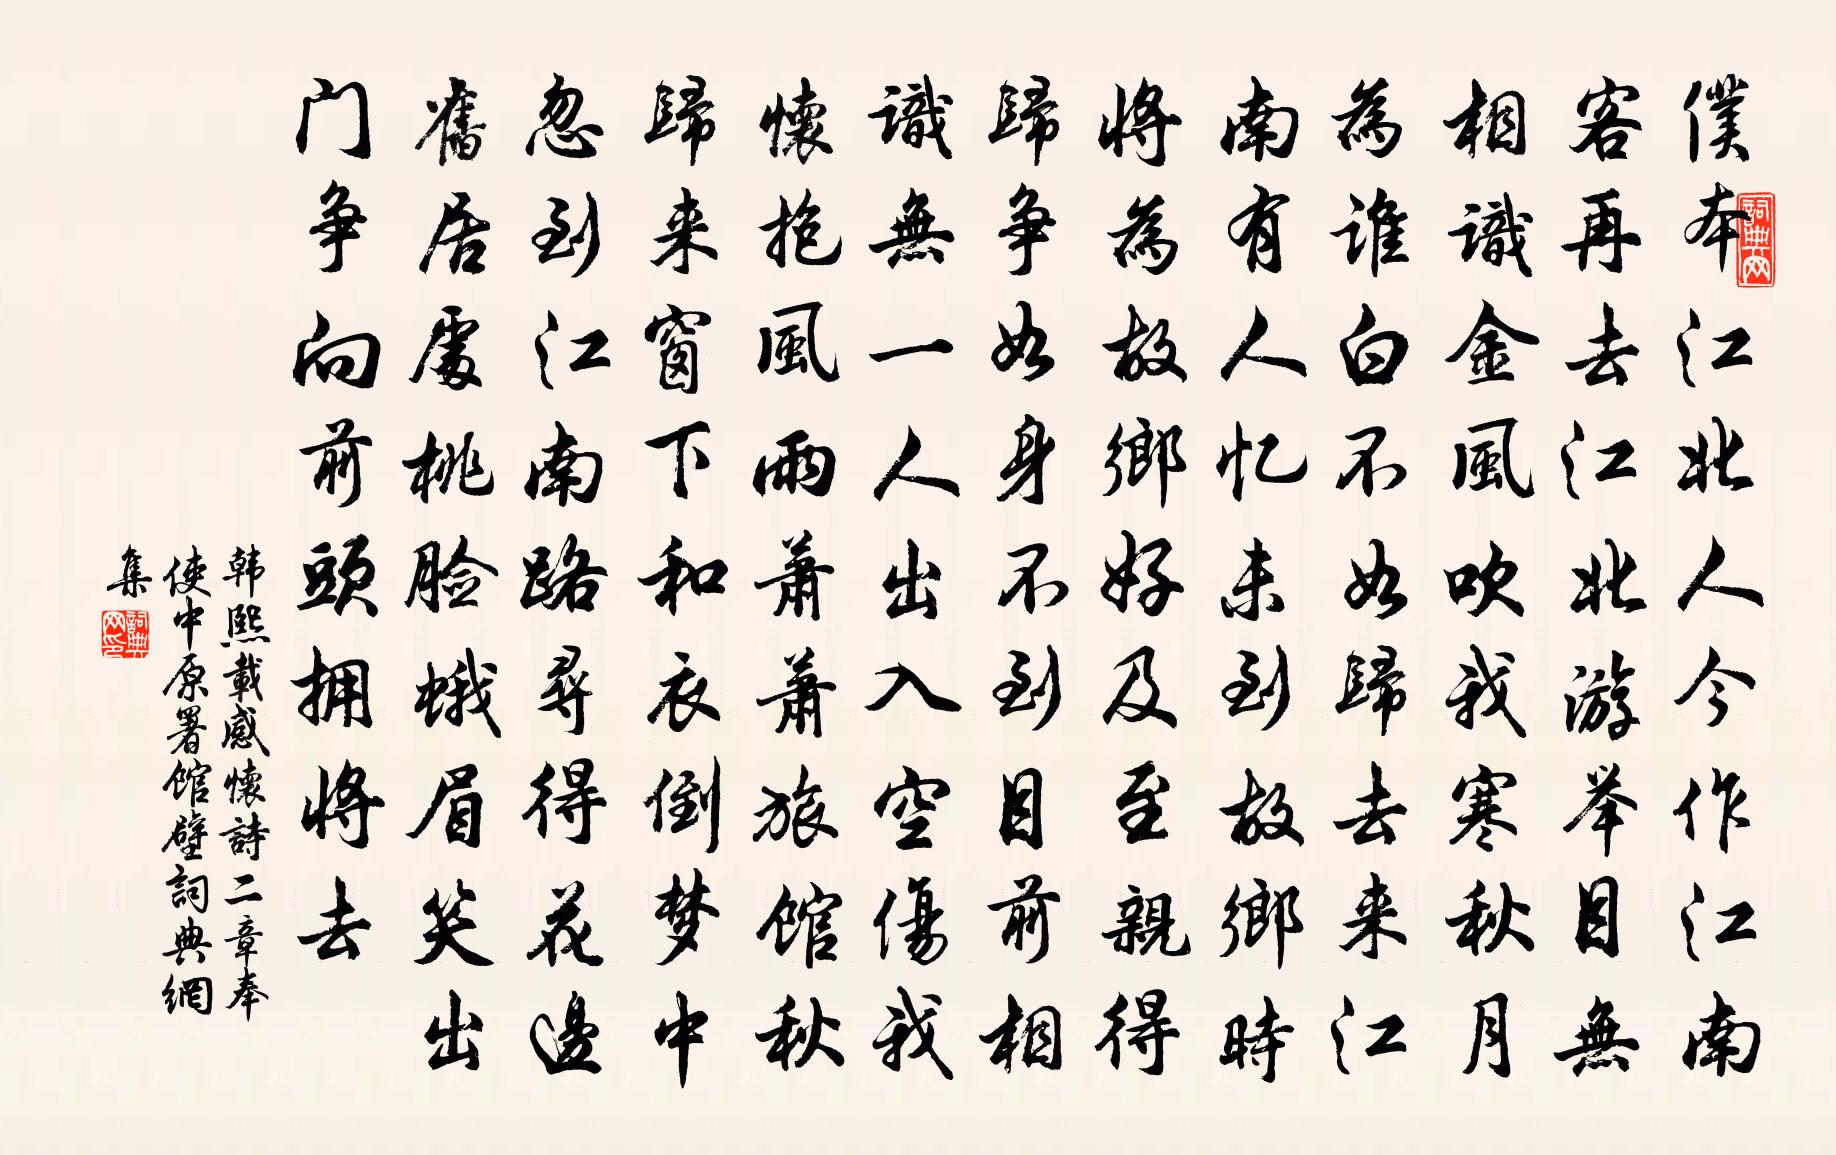 僕本江北人今作江南
客再去江北游举目無
相識金風吹我寒秋月
為谁白不如歸去来江
南有人忆未到故鄉時
将為故鄉好及至親得
歸争如身不到目前相
識無一人出入空傷我
懷抱風雨萧萧旅馆秋
歸来窗下和衣倒梦中
忽到江南路尋得花邊
舊居處桃脸蛾眉笑出
门争向前頭拥将去
韩熙載感懷詩二章奉
使中原署馆壁詞典網
集
詞典网
詞典网印